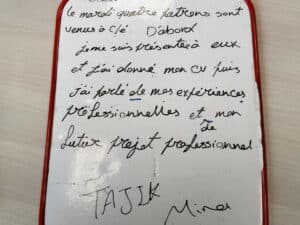 le mardi quatre patrons sont
venus à clé D'abord
je me suis présenté à eux
et j'ai donné mon CV puis
j'ai parlé de mes expériences
professionnelles et mon
de
futur projet professionnel
TAJIK
Mina